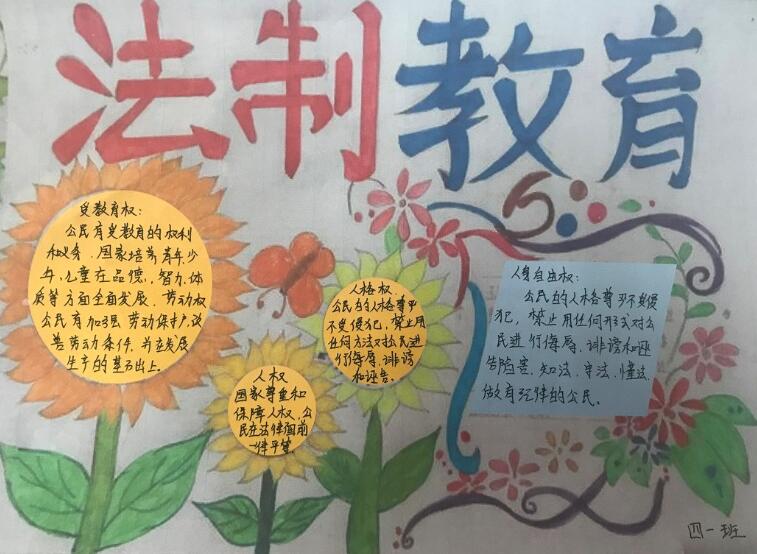 法制教育
受教育权:
公民有受教育的权利
和义务.国家培养青年少
年,儿童在品德,智力,体
质等方面全面发展.劳动权
公民有加强劳动保护,改
善劳动条件,并在发展
生产的基础上.
人权
国家尊重和
保障人权,公
民在法律面前
一律平等
人格权
公民的人格尊严
不受侵犯,禁止用
任何方法对公民进
行侮辱、诽谤
和诬告.
人身自由权:
公民的人格尊严不受侵
犯,禁止用任何形式对公
民进行侮辱、诽谤和诬
告陷害.知法、守法、懂法.
做有纪律的公民.
四一班